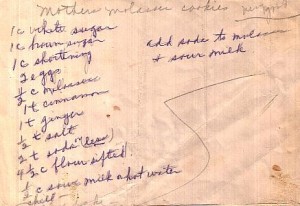 Mothers molasses cookies
1 c white sugar
1 c brown sugar
1 c shortening
2 eggs
c molasses
1 t cinnamon
1 t ginger
t salt
2 t soda
4 ½ c flour sifted
c sour milk hot water
add soda to molasses
+ sour milk